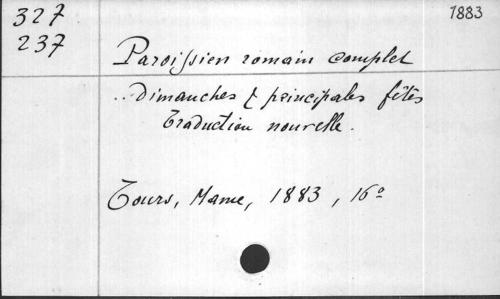 327
237
1883
Paroissien romain complet
.. dimanches & principales fêtes
Traduction nouvelle.
Tours, Mame, 1883, 16º